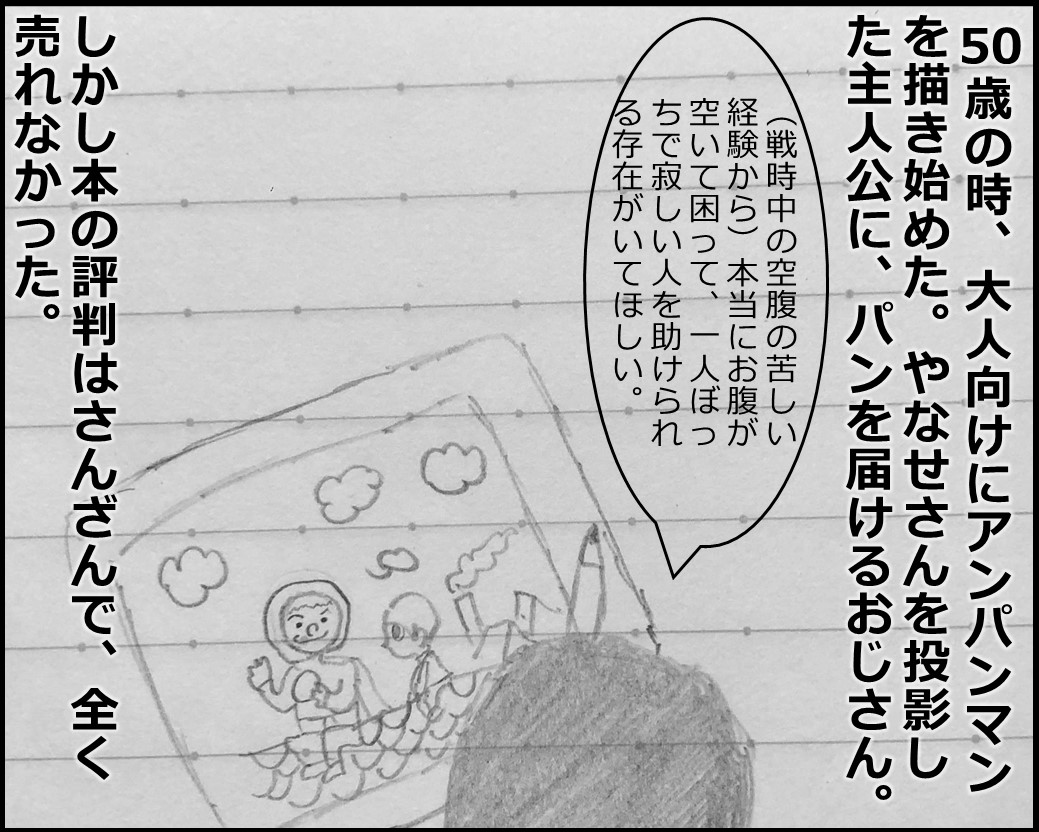 50歳の時、大人向けにアンパンマン
を描き始めた。やなせさんを投影し
た主人公に、パンを届けるおじさん。
（戦時中の空腹の苦しい
経験から）本当にお腹が
空いて困って、一人ぼっ
ちで寂しい人を助けられ
る存在がいてほしい。
しかし本の評判はさんざんで、全く
売れなかった。